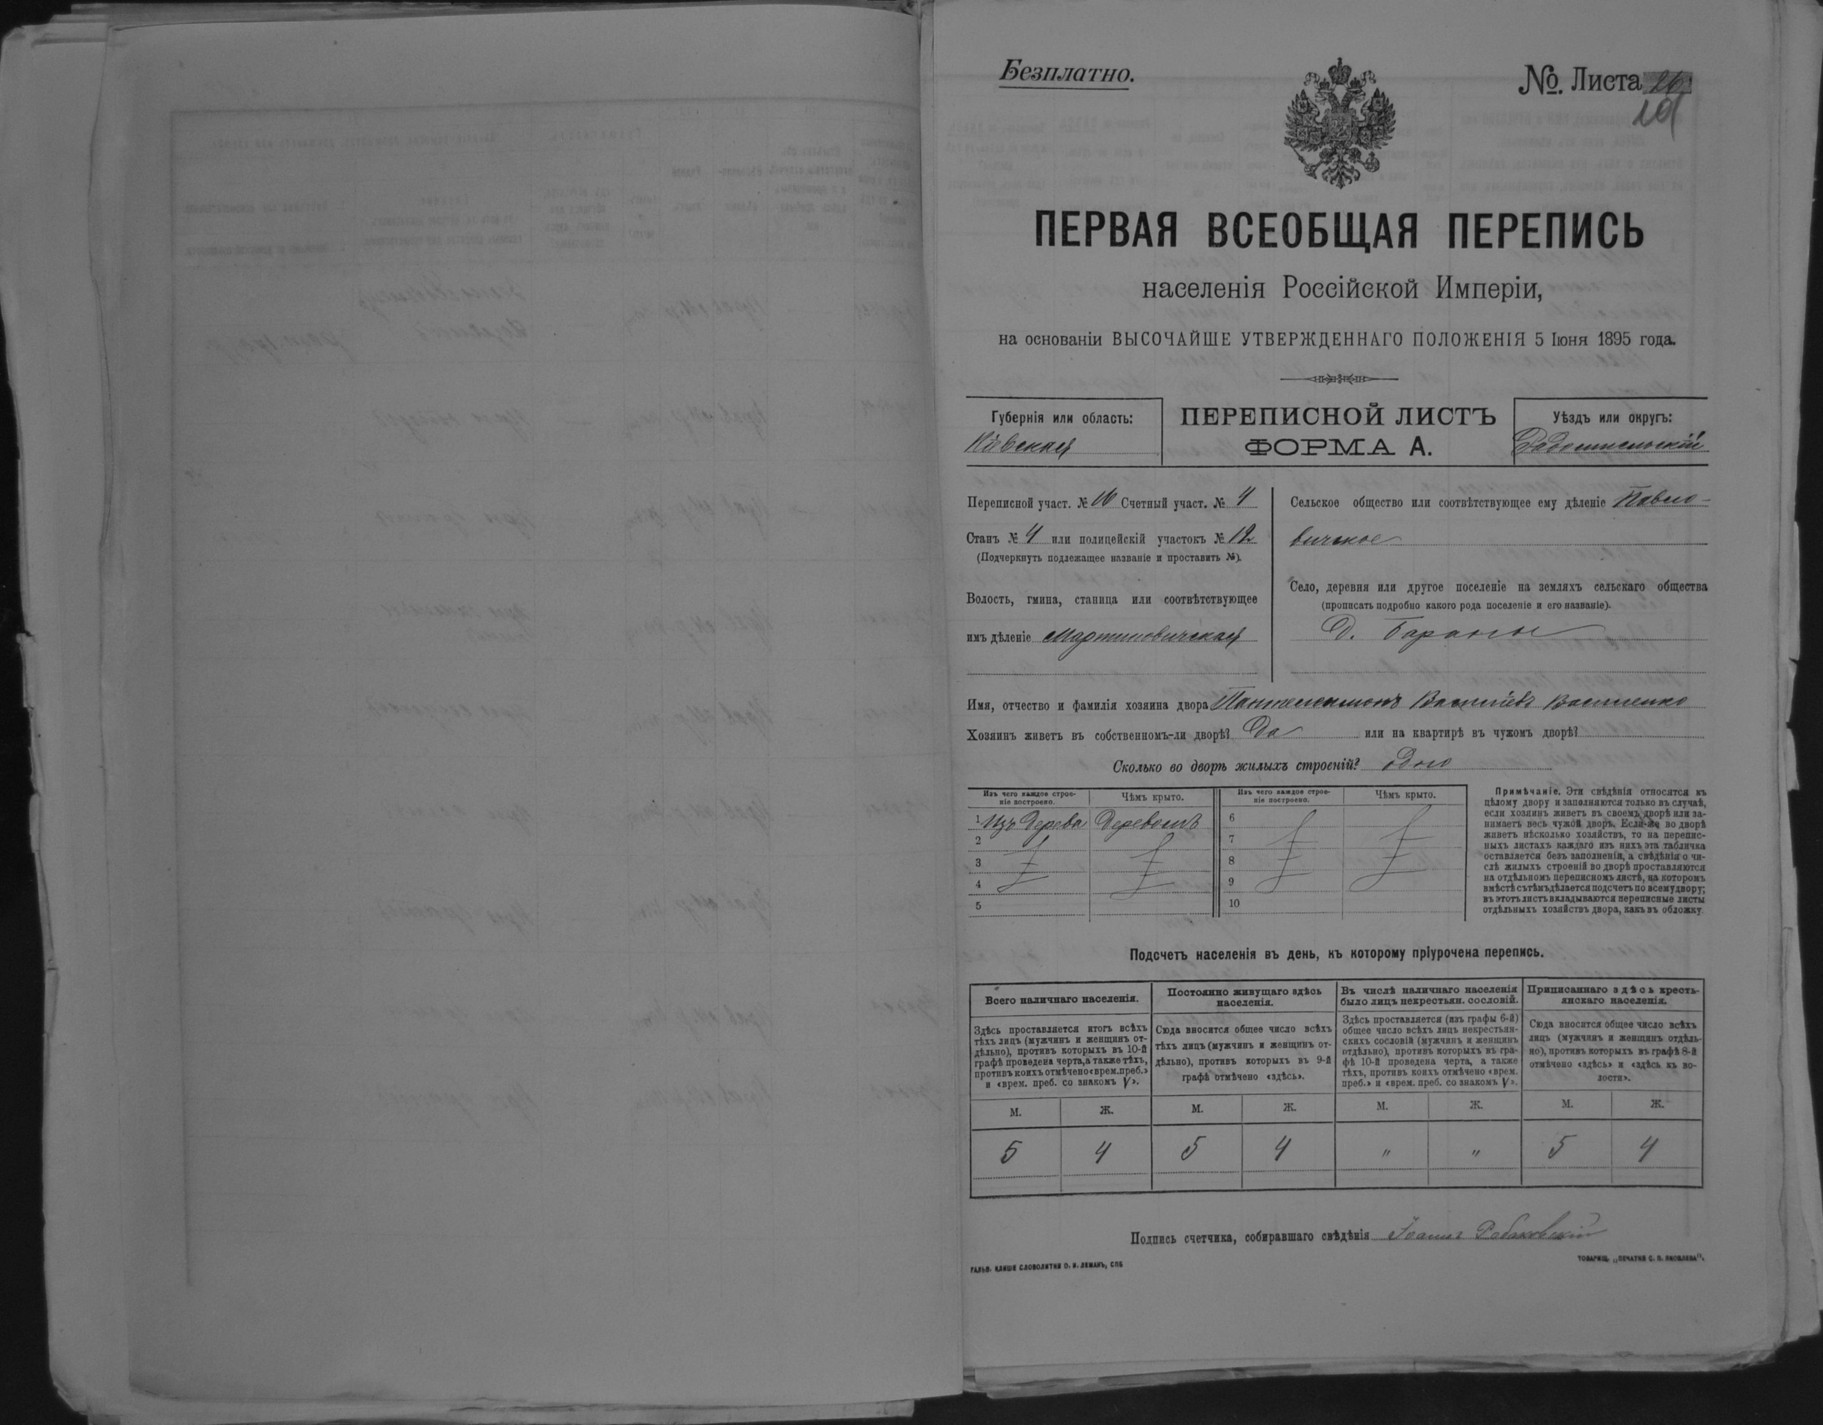 Безплатно.
№. Листа 26
ПЕРВАЯ ВСЕОБЩАЯ ПЕРЕПИСЬ
населенія Россійской Имперіи,
на основаніи ВЫСОЧАЙШЕ УТВЕРЖДЕННАГО ПОЛОЖЕНІЯ 5 Іюня 1895 года.
Губернія или область:
Кіевская
ПЕРЕПИСНОЙ ЛИСТЪ
ФОРМА А.
Уѣздъ или округъ:
Радомысльскій
Переписной участ. № 16 Счетный участ. № 4
Станъ № 4 или полицейскій участокъ № 12
(Подчеркнуть подлежащее названіе и проставить №).
Волость, гмина, станица или соотвѣтствующее
имъ дѣленіе Мартиновичская
Сельское общество или соотвѣтствующее ему дѣленіе Павло-
вичское
Село, деревня или другое поселеніе на земляхъ сельскаго общества
(прописать подробно какого рода поселеніе и его названіе).
Д. Бараны
Имя, отчество и фамилія хозяина двора Пантелеимонъ Васильевъ Василенко
Хозяинъ живетъ въ собственномъ-ли дворѣ? Да или на квартирѣ въ чужомъ дворѣ?
Сколько во дворѣ жилыхъ строеній? одно
Изъ чего каждое строе-
ніе построено.
Чѣмъ крыто.
Изъ чего каждое строе-
ніе построено.
Чѣмъ крыто.
1 Изъ дерева Деревомъ
2
3
4
5
6
7
8
9
10
Примѣчаніе. Эти свѣдѣнія относятся къ
цѣлому двору и заполняются только въ случаѣ,
если хозяинъ живетъ въ своемъ дворѣ или за-
нимаетъ весь чужой дворъ. Если-же во дворѣ
живетъ нѣсколько хозяйствъ, то на перепис-
ныхъ листахъ каждаго изъ нихъ эта табличка
оставляется безъ заполненія, а свѣдѣнія о чи-
слѣ жилыхъ строеній во дворѣ проставляются
на отдѣльномъ переписномъ листѣ, на которомъ
вмѣстѣ съ тѣмъ дѣлается подсчетъ по всему двору;
въ этотъ листъ вкладываются переписные листы
отдѣльныхъ хозяйствъ двора, какъ въ обложку.
Подсчетъ населенія въ день, къ которому пріурочена перепись.
Всего наличнаго населенія.
Здѣсь проставляется итогъ всѣхъ
тѣхъ лицъ (мужчинъ и женщинъ от-
дѣльно), противъ которыхъ въ 10-й
графѣ проведена черта, а также тѣхъ,
противъ коихъ отмѣчено «врем. преб.»
и «врем. преб. со знакомъ V».
Постоянно живущаго здѣсь
населенія.
Сюда вносится общее число всѣхъ
тѣхъ лицъ (мужчинъ и женщинъ от-
дѣльно), противъ которыхъ въ 9-й
графѣ отмѣчено «здѣсь».
Въ числѣ наличнаго населенія
было лицъ некрестьян. сословій.
Здѣсь проставляется (изъ графы 6-й)
общее число всѣхъ лицъ некрестьян-
скихъ сословій (мужчинъ и женщинъ
отдѣльно), противъ которыхъ въ гра-
фѣ 10-й проведена черта, а также
тѣхъ, противъ коихъ отмѣчено «врем.
преб.» и «врем. преб. со знакомъ V».
Приписаннаго здѣсь кресть-
янскаго населенія.
Сюда вносится общее число всѣхъ
лицъ (мужчинъ и женщинъ отдѣль-
но), противъ которыхъ въ графѣ 8-й
отмѣчено «здѣсь» и «здѣсь къ во-
лости».
М. Ж. М. Ж. М. Ж. М. Ж.
5 4 5 4 " " 5 4
Подпись счетчика, собиравшаго свѣдѣнія Іоаннъ
ГАЛЬВ. КЛИШЕ СЛОВОЛИТНИ О. И. ЛЕМАНЪ, СПБ
ТОВАРИЩ. „ПЕЧАТНЯ С. П. ЯКОВЛЕВА".